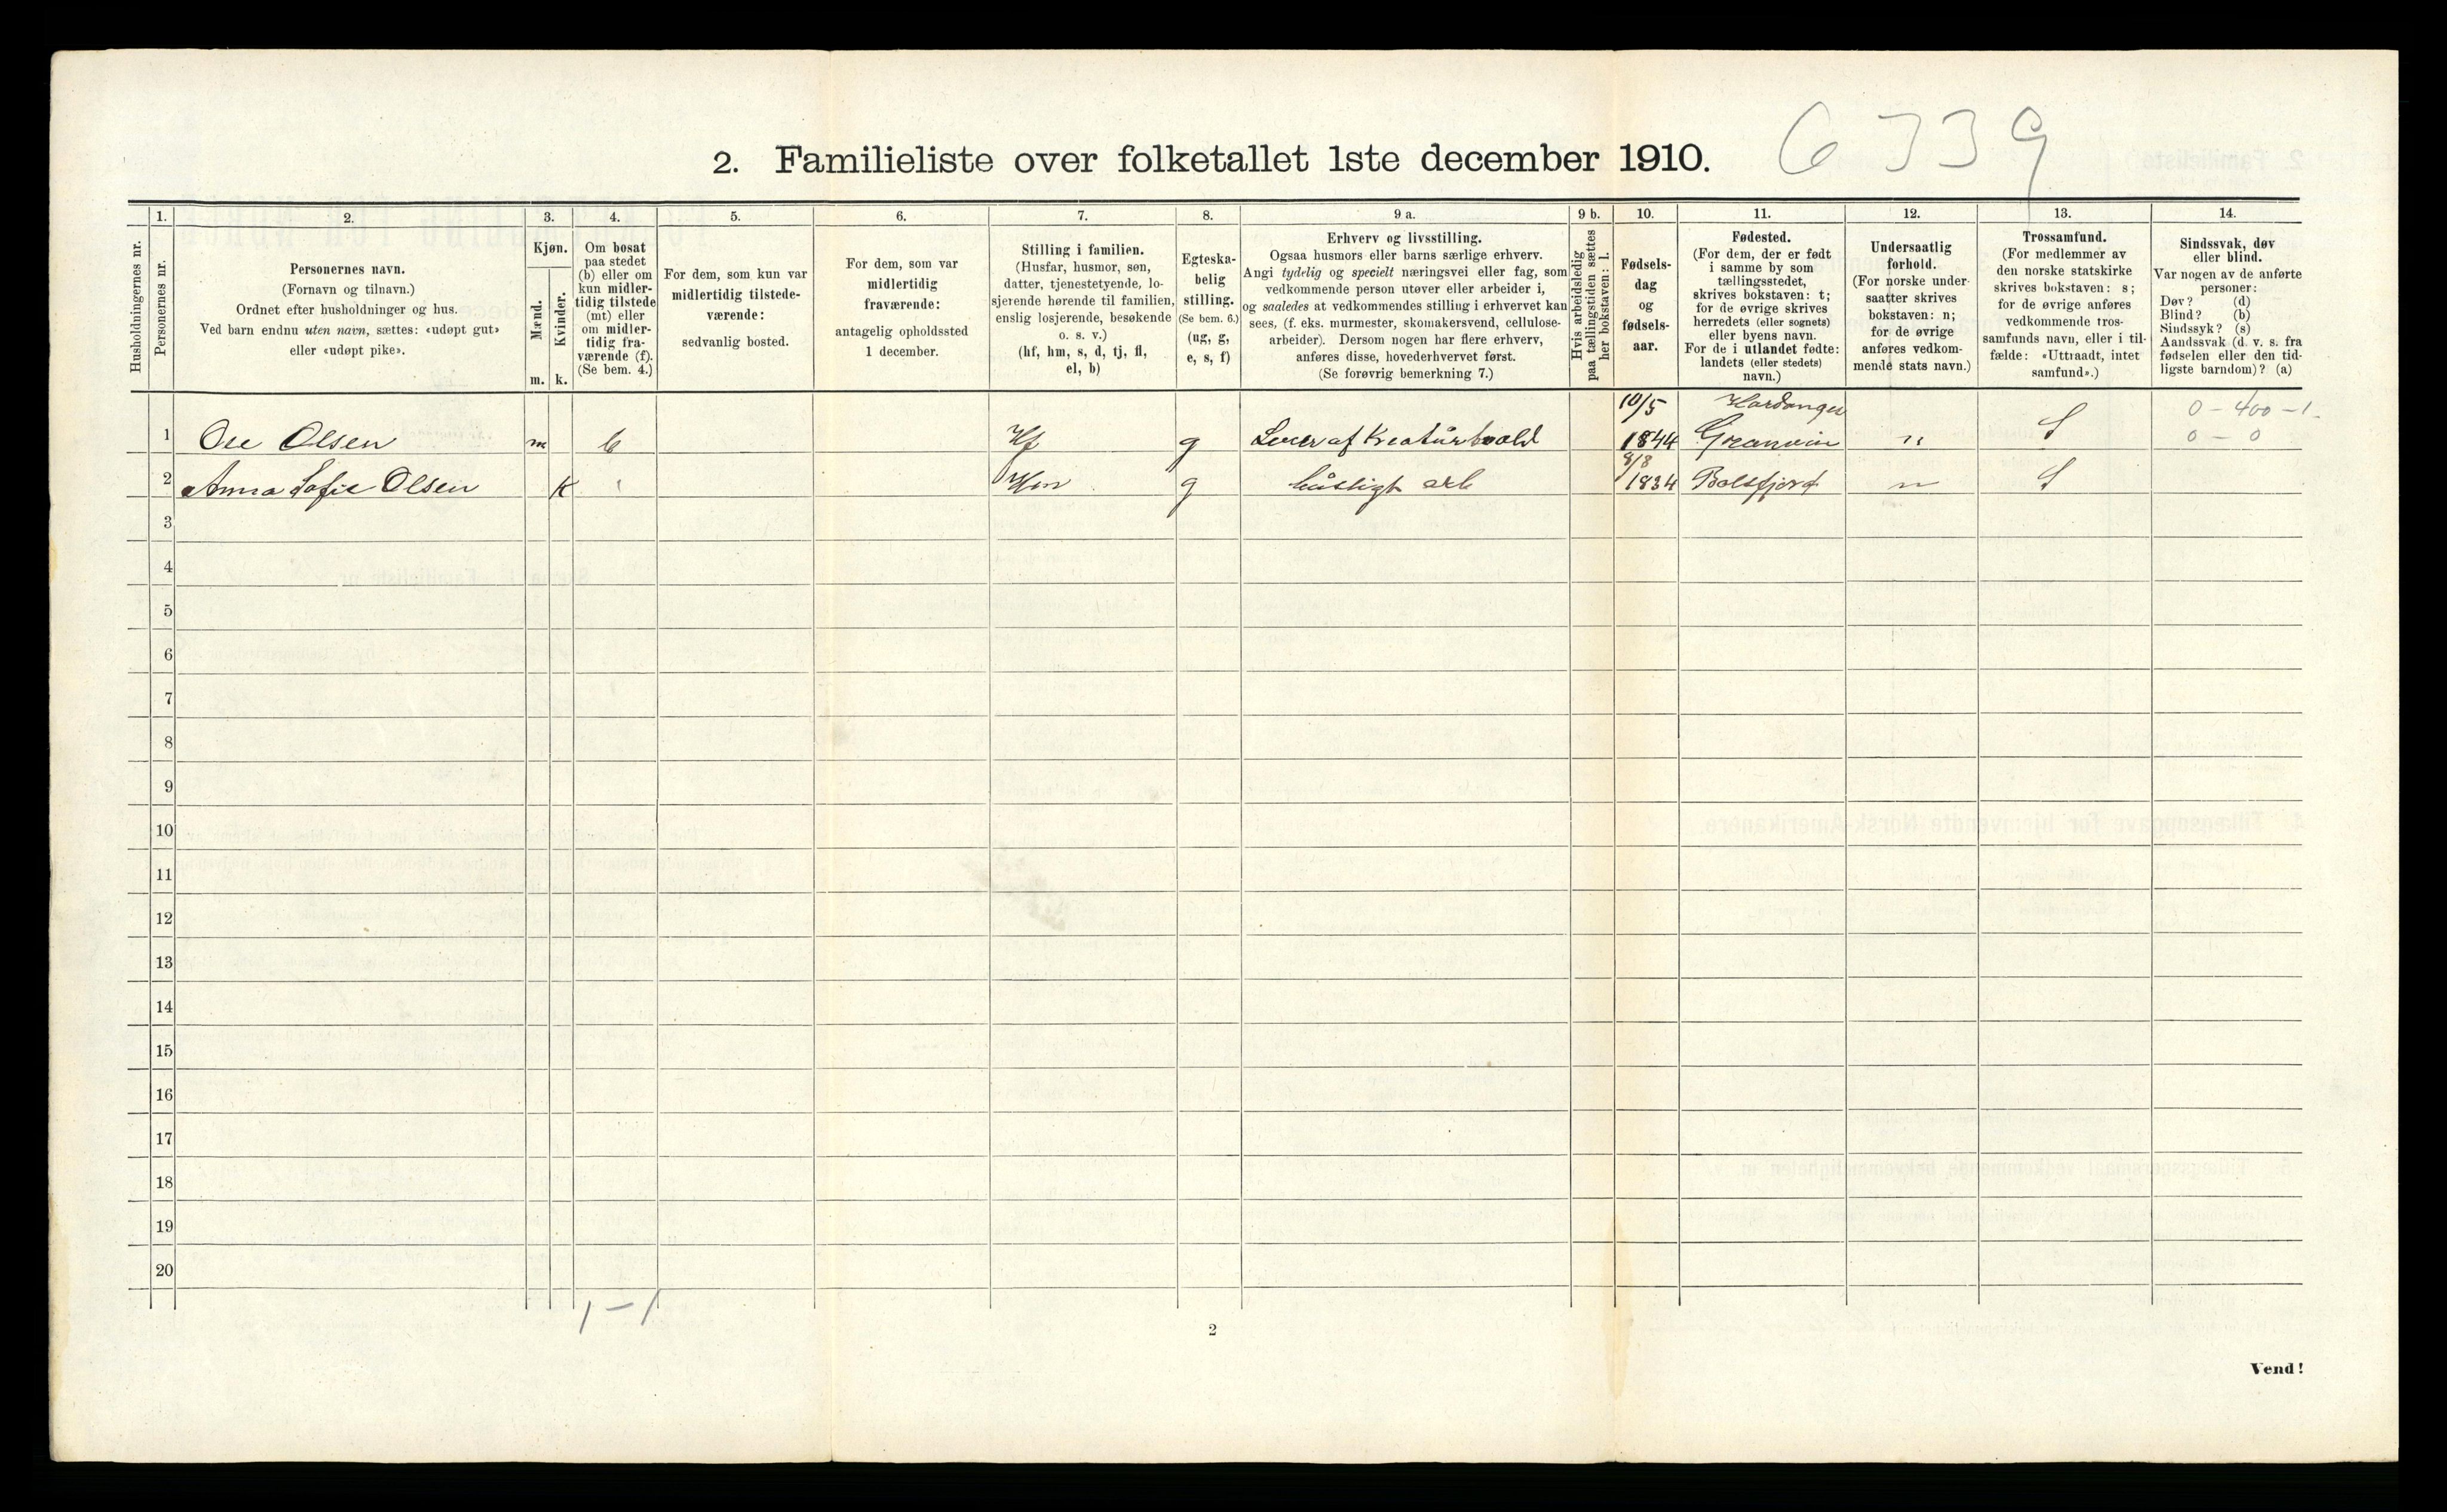 6339
2. Familieliste over folketallet 1ste december 1910.
1. 2. 3. 4. 5. 6. 7. 8. 9 a. 9 b. 10. 11. 12. 13. 14.
Husholdningernes nr.
Personernes nr.
Personernes navn.
(Fornavn og tilnavn.)
Ordnet efter husholdninger og hus.
Ved barn endnu uten navn, sættes: «udøpt gut»
eller «udøpt pike».
Kjøn.
Mænd.
m.
Kvinder.
k.
Om bosat
paa stedet
(b) eller om
kun midler-
tidig tilstede
(mt) eller
om midler-
tidig fra-
værende (f).
(Se bem. 4.)
For dem, som kun var
midlertidig tilstede-
værende:
sedvanlig bosted.
For dem, som var
midlertidig
fraværende:
antagelig opholdssted
1 december.
Stilling i familien.
(Husfar, husmor, søn,
datter, tjenestetyende, lo-
sjerende hørende til familien,
enslig losjerende, besøkende
o. s. v.)
(hf, hm, s, d, tj, fl,
el, b)
Egteska-
belig
stilling.
(Se bem. 6.)
(ug, g,
e, s, f)
Erhverv og livsstilling.
Ogsaa husmors eller barns særlige erhverv.
Angi tydelig og specielt næringsvei eller fag, som
vedkommende person utøver eller arbeider i,
og saaledes at vedkommendes stilling i erhvervet kan
sees, (f. eks. murmester, skomakersvend, cellulose-
arbeider). Dersom nogen har flere erhverv,
anføres disse, hovederhvervet først.
(Se forøvrig bemerkning 7.)
Hvis arbeidsledig
paa tællingstiden sættes
her bokstaven: l.
Fødsels-
dag
og
fødsels-
aar.
Fødested.
(For dem, der er født
i samme by som
tællingsstedet,
skrives bokstaven: t;
for de øvrige skrives
herredets (eller sognets)
eller byens navn.
For de i utlandet fødte:
landets (eller stedets)
navn.)
Undersaatlig
forhold.
(For norske under-
saatter skrives
bokstaven: n;
for de øvrige
anføres vedkom-
mende stats navn.)
Trossamfund.
(For medlemmer av
den norske statskirke
skrives bokstaven: s;
for de øvrige anføres
vedkommende tros-
samfunds navn, eller i til-
fælde: «Uttraadt, intet
samfund».)
Sindssvak, døv
eller blind.
Var nogen av de anførte
personer:
Døv? (d)
Blind? (b)
Sindssyk? (s)
Aandssvak (d. v. s. fra
fødselen eller den tid-
ligste barndom)? (a)
10/5 Hardanger 0-400-1
1 Ole Olsen m b Hf g Lever af Kreaturhold 1844 Granvin n S 0-0
8/8
2 Anna Sofie Olsen K Hm g husligt arb 1834 Balsfjord n S
3
4
5
6
7
8
9
10
11
12
13
14
15
16
17
18
19
20
1-1
2
Vend!